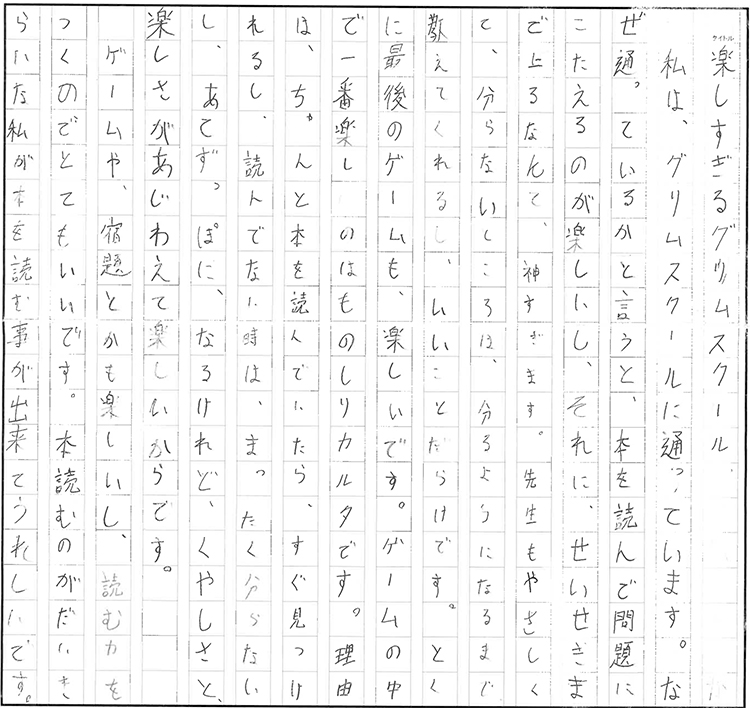 タイトル
楽しすぎるグリムスクール
私は、グリムスクールに通っています。な
ぜ通っているかと言うと、本を読んで問題に
こたえるのが楽しいし、それに、せいせきま
で上るなんて、神すぎます。先生もやさしく
て、分らないところは、分るようになるまで
教えてくれるし、いいことだらけです。とく
に最後のゲームも、楽しいです。ゲームの中
で一番楽しのはものしりカルタです。理由
は、ちゃんと本を読んでいたら、すぐ見つけ
れるし、読んでない時は、まったく分らない
し、あてずっぽに、なるけれど、くやしさと、
楽しさがあじわえて楽しいからです。
ゲームや、宿題とかも楽しいし、読む力を
つくのでとてもいいです。本読むのがだいき
らいな私が本を読む事が出来てうれしいです。